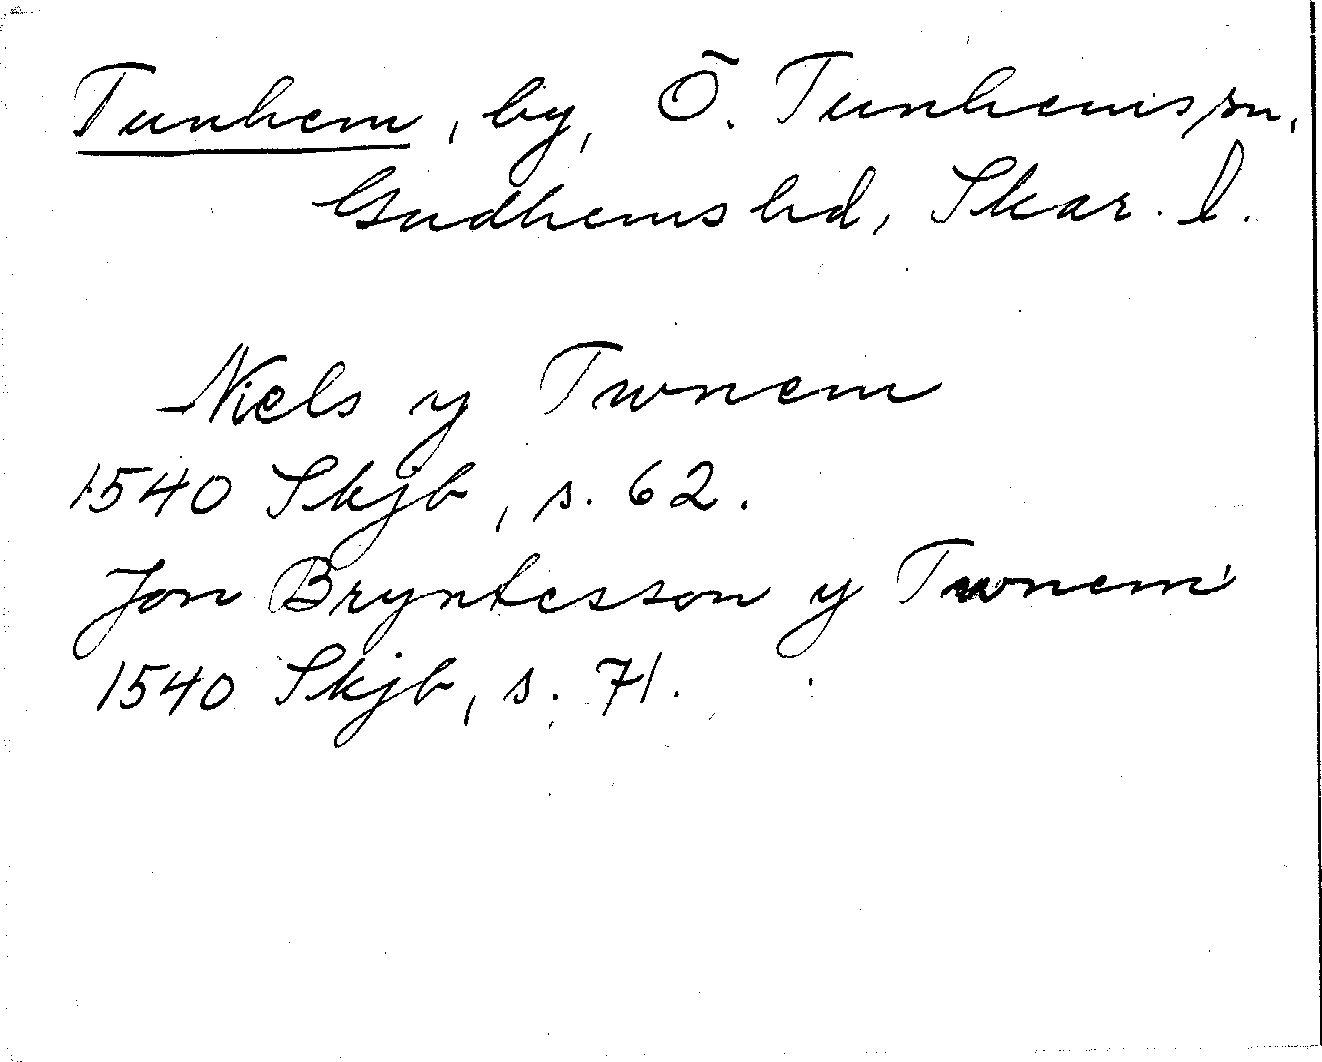 Tunhem, by, Ö. Tunhems sn,
Gudhems hd, Skar. l.
Niels y Twnem
1540 Skjb, s. 62.
Jon Bryntesson y Twnem
1540 Skjb, s. 71.